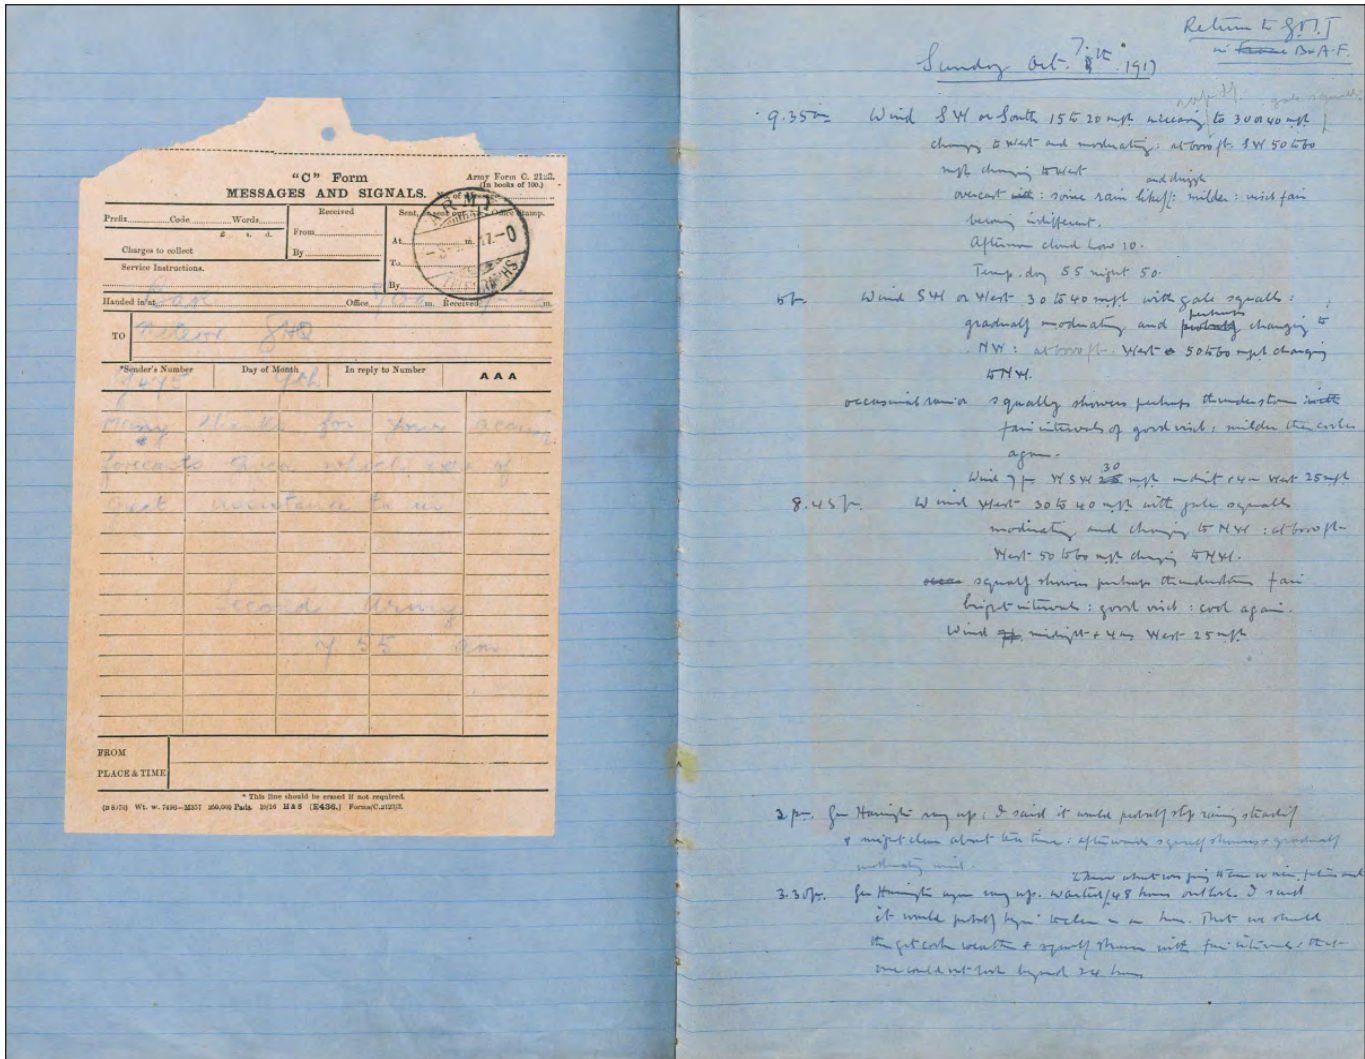 "C" Form
Army Form C. 2123.
(In books of 100.)
MESSAGES AND SIGNALS.
Prefix Code Words
£ s. d.
Charges to collect
Service Instructions.
Received
From
By
Sent, Office Stamp.
At m.
To
By
ARMY
Handed in at Office m. Received m.
TO
Meteor GHQ
*Sender's Number Day of Month In reply to Number AAA
9th
Many thanks for your
forecasts which were of
great assistance to us
Second Army
7 55 am
FROM
PLACE & TIME
* This line should be erased if not required.
Wt. w. 7496—M357 250,000 Pads. 10/16 HAS (E436.) Forms/C.2123/3.
Return to G.M.T
in B.E.A.F.
Sunday Oct. 7th. 1917
gale squalls
9.35 am Wind SW or South 15 to 20 mph increasing to 30 or 40 mph
changing to West and moderating: at 6000 ft. SW 50 to 60
mph changing to West
and drizzle
overcast with: some rain likely: milder: visit fair
becoming indifferent.
Afternoon cloud low 10.
Temp. day 55 night 50.
5 p. Wind SW or West 30 to 40 mph with gale squalls:
perhaps
gradually moderating and probably changing to
NW: at 6000 ft. West 50 to 60 mph changing
to NW.
occasional rain or squally showers perhaps thunderstorm with
fair intervals of good visit: milder then cooler
again.
30
Wind 7 p. WSW 25 mph midnt + 4 am West 25 mph
8.45 p. Wind West 30 to 40 mph with gale squalls
moderating and changing to NW: at 6000 ft
West 50 to 60 mph changing to NW.
squally showers perhaps thunderstorm fair
bright intervals: good visit: cool again.
Wind midnight + 4 am West 25 mph
2 pm. Gen Harington rang up: I said it would probably stop raining steadily
& might clear about tea time: afterwards squally showers & gradually
moderating wind.
what was going to
3.30 p. Gen Harington again rang up. wanted 48 hours outlook. I said
it would probably begin to clear in an hour. That we should
then get cooler weather & squally showers with fair intervals: that
one could not look beyond 24 hours